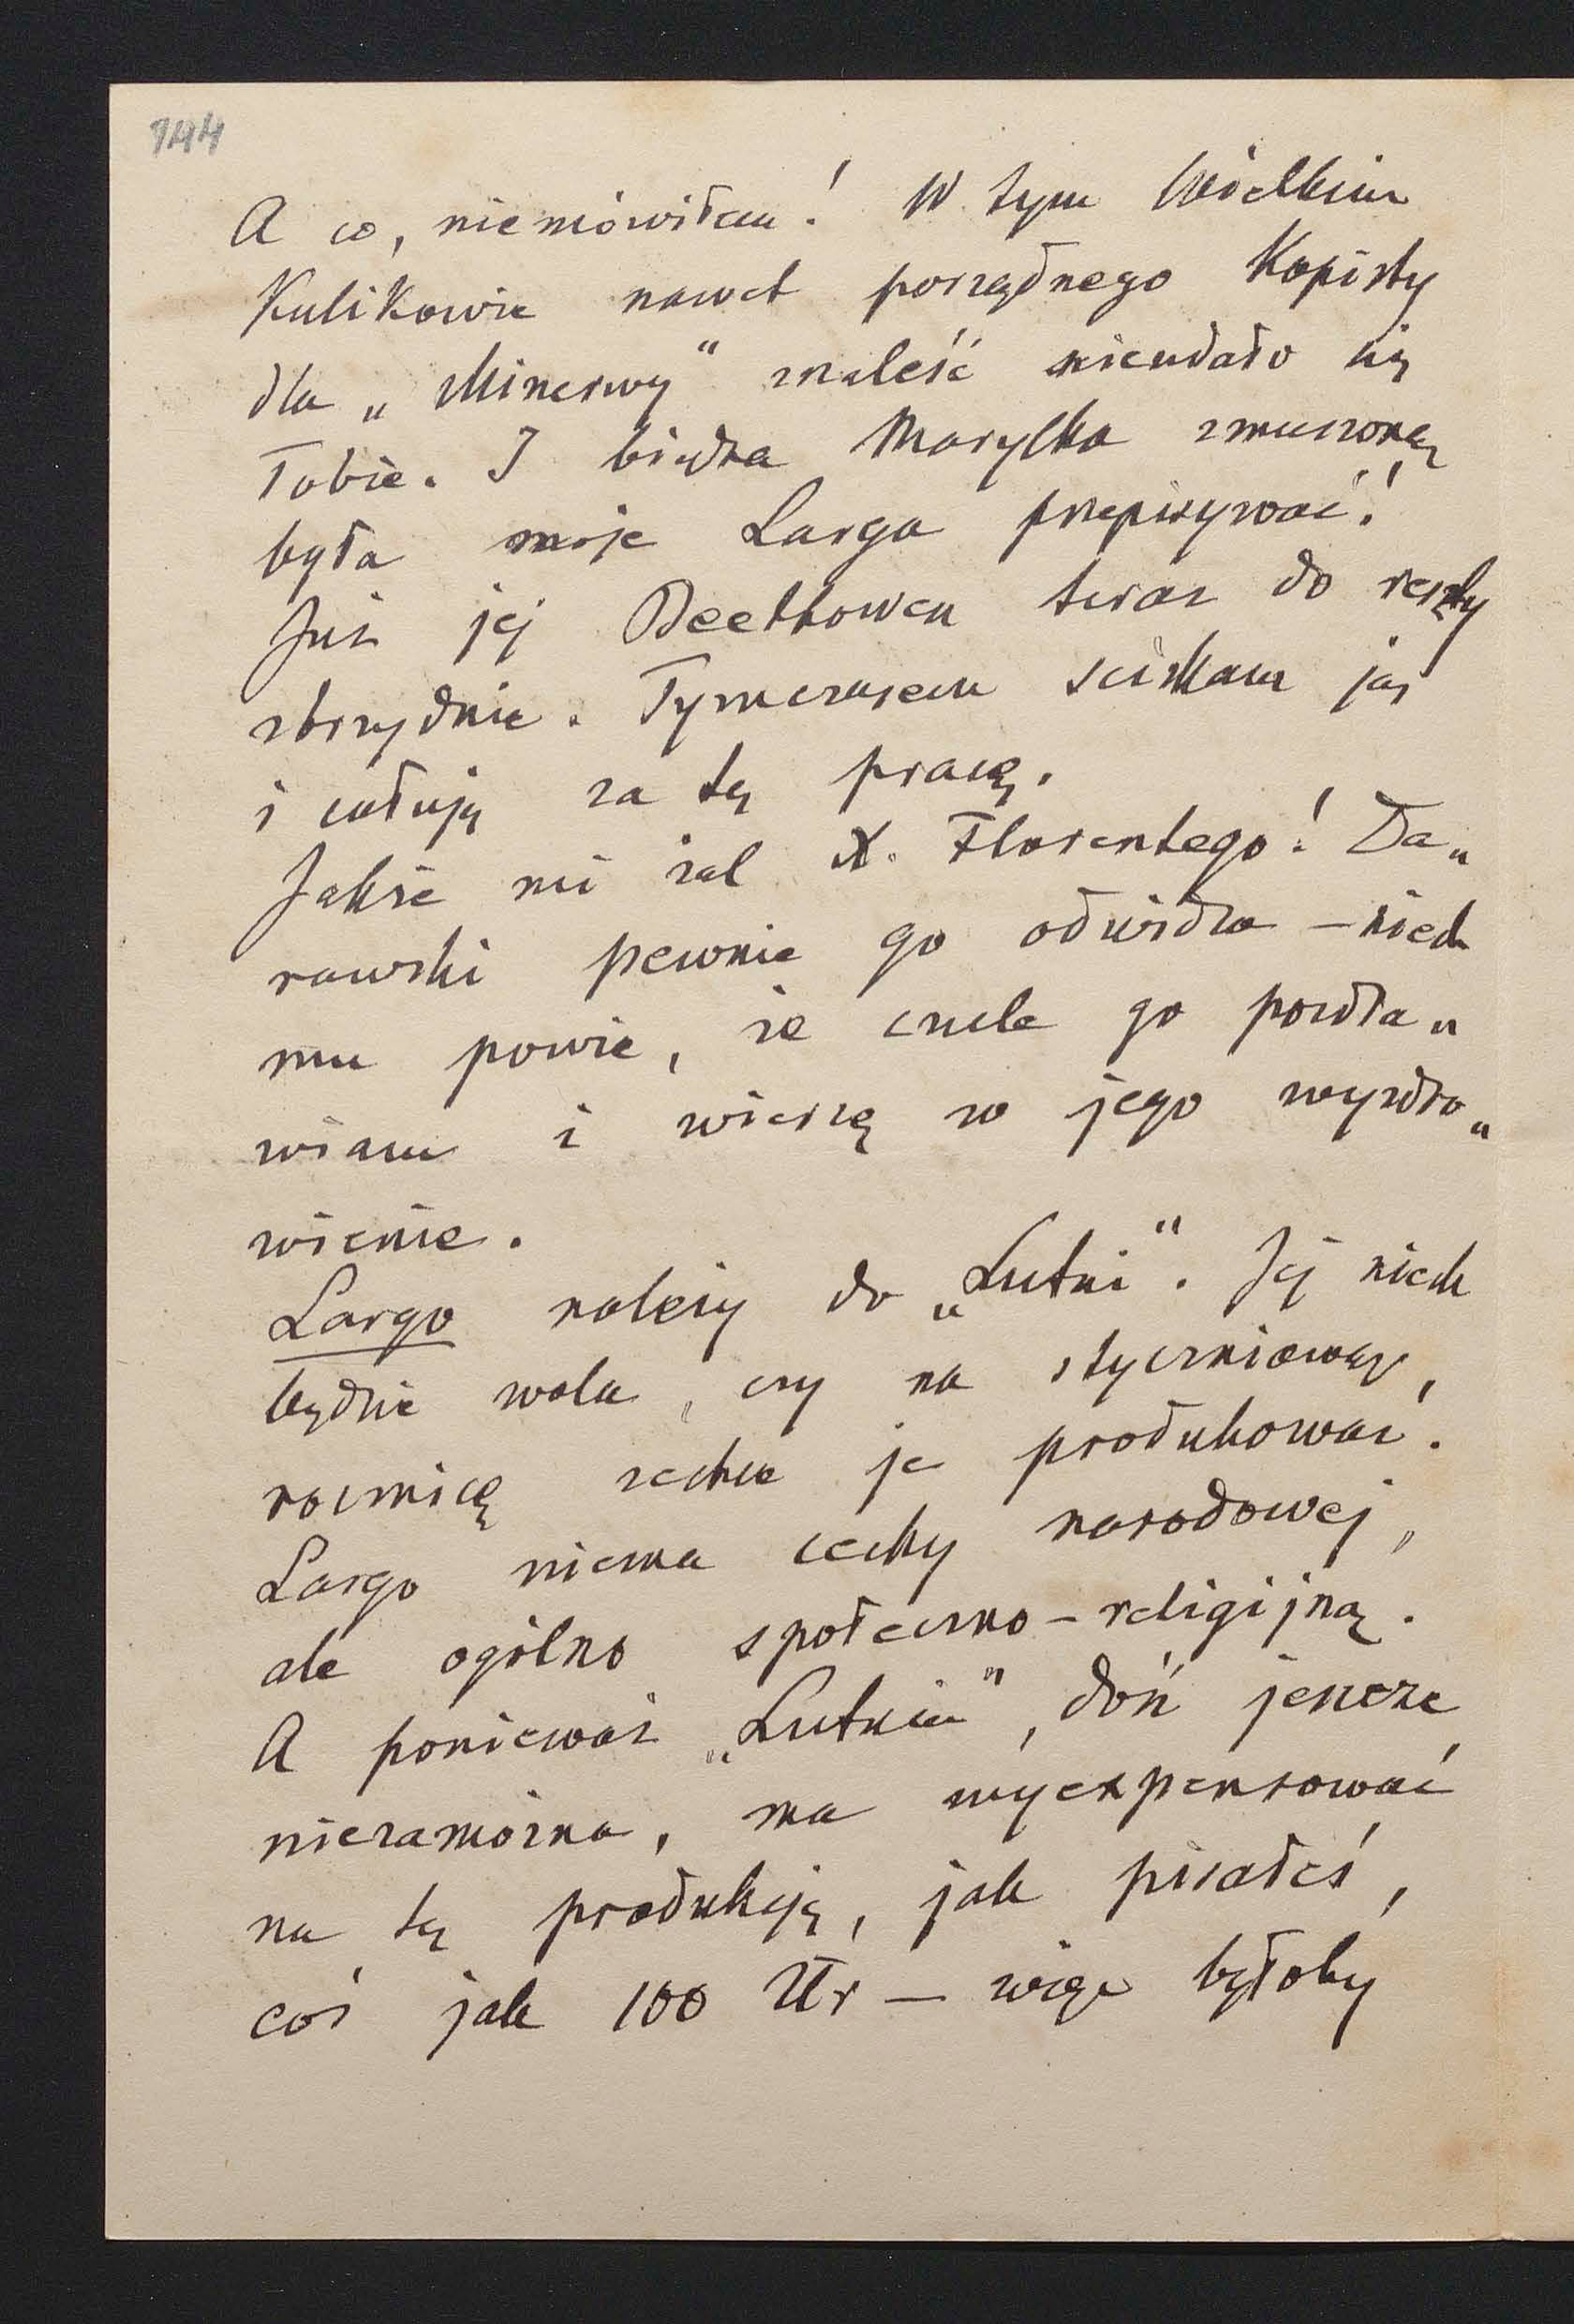 144
A co, niemówiłem! W tym Wielkim
Kulikowie nawet porządnego Kopisty
dla „Minerwy" znaleść nieudało się
Tobie. I biedna Marylka zmuszoną
była moje Larga przepisywać!
Już jej Beethowen teraz do reszty
zbrzydnie. Tymczasem sciskam ją
i całuję za tę pracę.
Jakże mi żal X. Florentego! Da„
rowski pewnie go odwidza – niech
mu powie, że czule go pozdra„
wiam i wierzę w jego wyzdro„
wienie.
Largo należy do „Lutni". Jej niech
będzie wola, czy na styczniową,
rocznicę zechce je produkować.
Largo niema cechy narodowej,
ale ogólno społeczno-religijną.
A ponieważ „Lutnia", dość jeszcze
niezamożna, ma wyexpensować
na tę produkcję, jak pisałeś,
coś jak 100 Złr – więc byłoby